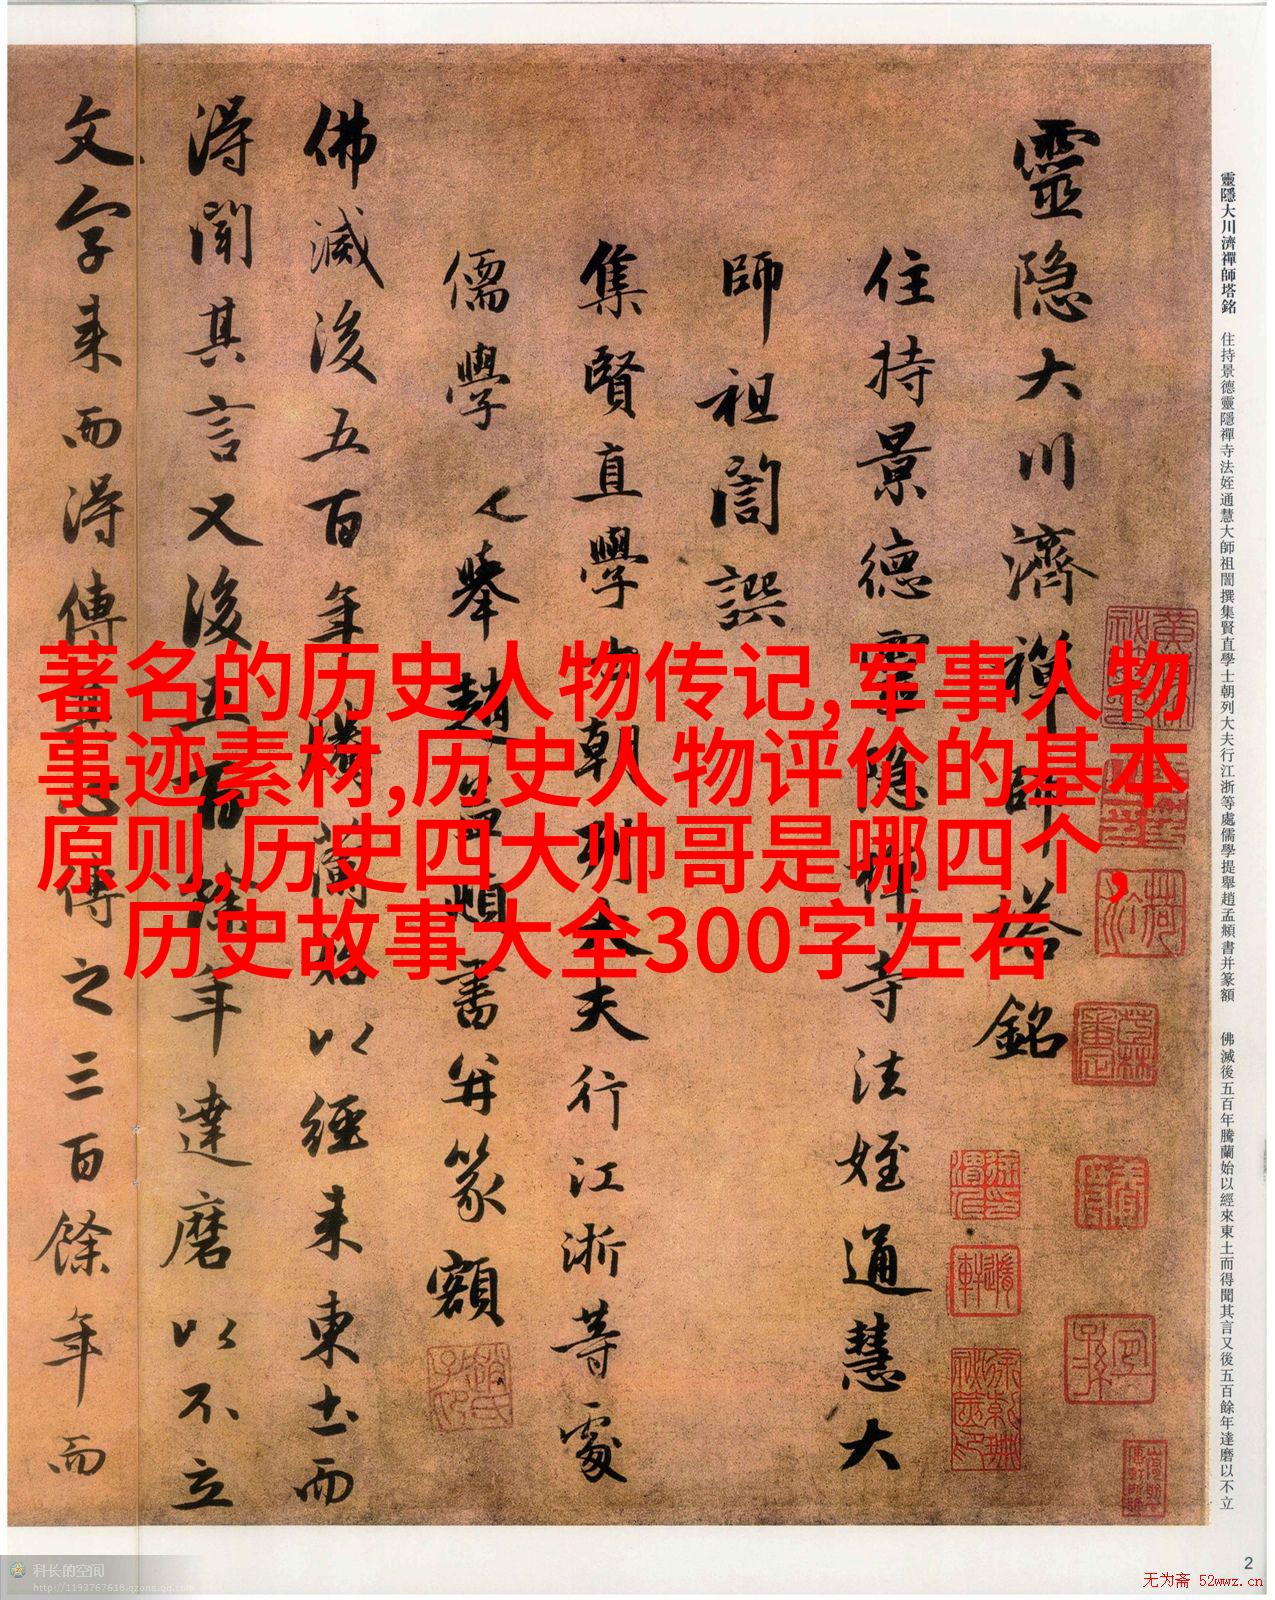 靈隐大川濟禪師塔銘
住持景德靈隐禪寺法姪通慧大
師祖誾譔
集賢直學士朝列大夫行江浙等處
儒學提舉趙孟頫書并篆額
佛滅後五百年騰蘭始以經来東土而
得聞其言又後五百餘年達磨以不立
文字来而得傳其心傳之三百餘年而
靈隱大川濟禪師塔銘 住持景德靈隱禪寺法姪通慧大師祖誾撰集賢直學士朝列大夫行江浙等處儒學提舉趙孟頫書并篆額 佛滅後五百年騰蘭始以經來東土而得聞其言又後五百餘年達磨以不立
著名的历史人物传记,军事人物
事迹素材,历史人物评价的基本
原则,历史四大帅哥是哪四个,
历史故事大全300字左右
2
科长的空间
http://1193767618.qzone.qq.com
无为斋 52wwz.cn